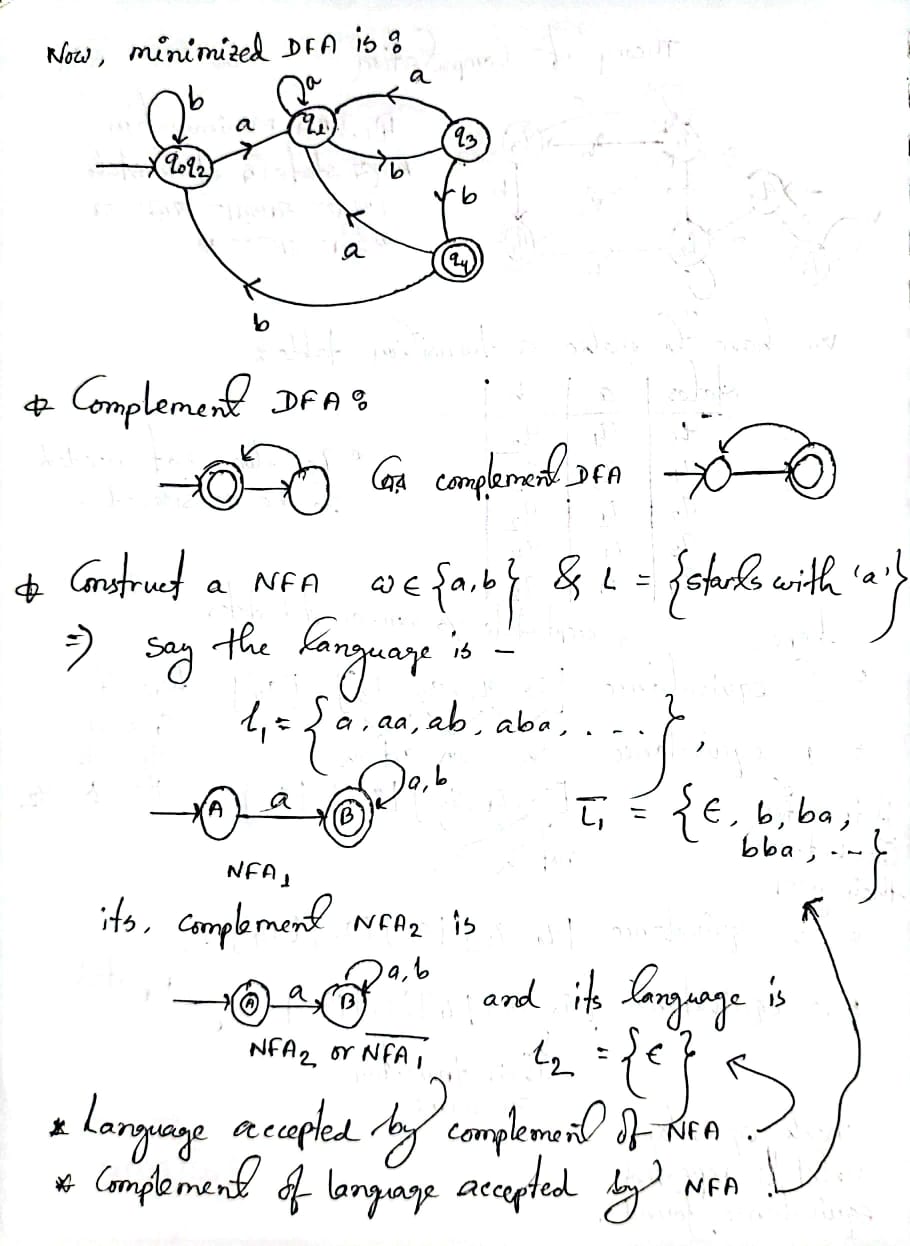 Now, minimized DFA is :
b a a a
q0q2 q1 q3
b b
a q4
b
* Complement DFA :
এর complement DFA
* Construct a NFA ω ∈ {a,b} & L = {starts with 'a'}
⇒ say the language is –
L₁ = {a, aa, ab, aba, ....},
A a B a,b
L̅₁ = {ϵ, b, ba,
bba, ...}
NFA₁
its, complement NFA₂ is
A a B a,b and its language is
NFA₂ or N̅F̅A̅₁ L₂ = {ϵ}
* Language accepted by complement of NFA.
* Complement of language accepted by NFA.